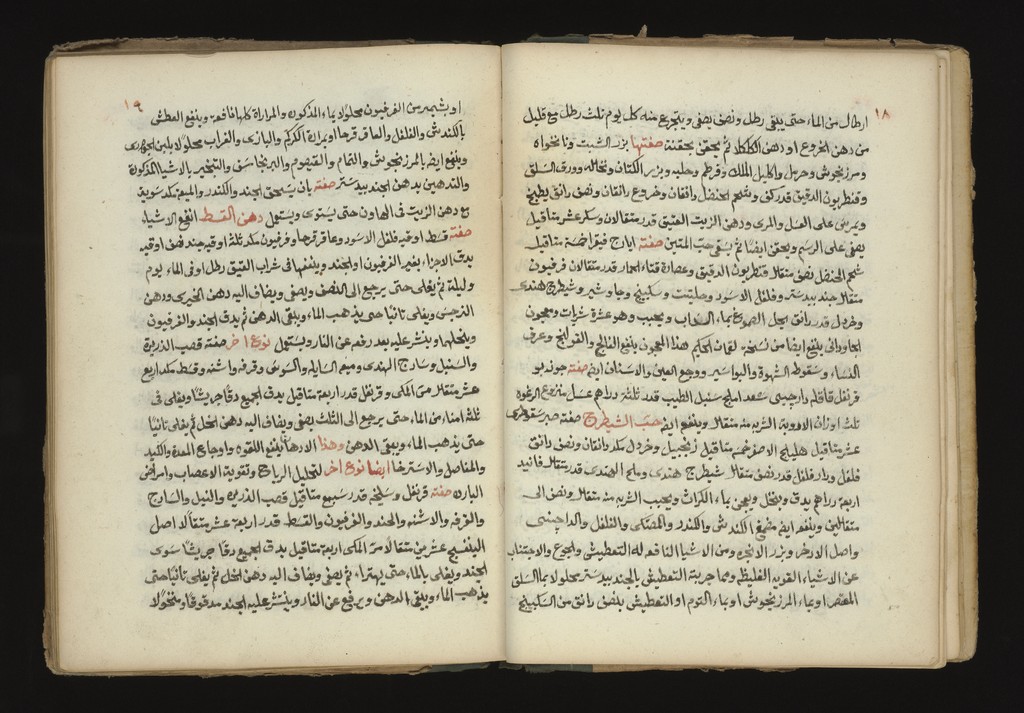 ١٨
ارطال من الماء حتى يبقى رطل ونصف يصفى ويتجرع منه كل يوم ثلث رطل مع قليل
من دهن الخروع او دهن الكلكلا ثم يحقن بحقنة صفتها بزر الشبت ونانخواه
ومرزنجوش وحرمل واكليل الملك وقرطم وحلبه وبزر الكتان ونخاله وورق السلق
وقنطريون الدقيق قدر كف وشحم الحنضل دانقان وخروع دانقان ونصف دانق يطبخ
ويمرس على العسل والمرى ودهن الزيت العتيق قدر مثقالان وسكر عشر مثاقيل
يصفى على الرسم ويحقن ايضا ثم يسقى حب المنتن صفته ايارج فيقرا خمسة مثاقيل
شحم الحنضل نصف مثقال قنطريون الدقيق وعصارة قثاء الحمار قدر مثقالان فرفيون
مثقال جندبيدستر وفلفل الاسود وحلتيت وسكبينج وجاوشير وشيطرج هندى
وخردل قدر دانق يحل الصموغ بماء السداب ويحبب وهو عشرة شربات ومعجون
ينفع ايضا من نسخة لقمان الحكيم هذا المعجون ينفع الفالج والقولنج وعرف
النساء وسقوط الشهوة والبواسير ووجع العين والاسنان ايضا صفته جوندبو
قرنفل قاقله دارچينى سعد املج سنبل الطيب قدر ثلثة دراهم عسل منزوع الرغوه
ثلث اوزان الادوية الشربه منه مثقال وينفع ايضا حب الشيطرج صفته صبر سقوطرى
عشر مثاقيل هليلج الاصفر خمس مثاقيل زنجبيل وخردل مكد دانقان ونصف دانق
فلفل ودار فلفل قدر نصف مثقال شيطرج هندى وملح الهندى قدر مثقال فانيد
اربعة دراهم يدق وينخل ويعجن بماء الكراث ويحبب الشربه منه مثقال ونصف الى
مثقالين وينفع ايضا مضغ الكندش والكندر والمصتكى والفلفل والدارچينى
واصل الاذخر وبزر الانجره ومن الاشيا النافعة له التعطيش والجوع والاجتناب
عن الاشياء القويه الغليظه ومما جربته التعطيش بالجندبيدستر محلولا بماء السلق
المعتصر او بماء المرزنجوش او بماء الثوم او التعطيش بنصف دانق من السكبينج
١٩
او بشيء من الفرفيون محلولا بماء المذكور والمراراة كلها نافعة وينفع العطش
بالكندش والفلفل والعاقرقرحا او مرارة الكركى والبازى والغراب محلولا بلبن الجوارى
وينفع ايضا بالمرزنجوش والنمام والقيصوم والبرنجاسف والتبخير بالاشيا المذكورة
والتدهين بدهن الجندبيدستر صفته بان يسحق الجند والكندر والميعه مكد سويق
مع دهن الزيت فى الهاون حتى يستوى ويستعمل دهن القسط انفع الاشياء
صفته قسط اوقيه فلفل الاسود وعاقرقرحا وفرفيون مكد ثلث اوقيه جند نصف اوقيه
يدق الاجزاء بغير الفرفيون او الجند وينقعها فى شراب العتيق رطل او فى الماء يوم
وليلة ثم يغلى حتى يرجع الى النصف ويصفى ويضاف اليه دهن الخيرى ودهن
النرجس ويغلى ثانيا حتى يذهب الماء ويبقى الدهن ثم يدق الجند والفرفيون
وينخلها وينشر عليه بعد رفعه عن النار ويستعمل نوع اخر صفته قصب الذريرة
والسنبل وسادج الهندى وميعه السايله والسوس وقرفه واشنه وقسط مكد اربع
عشر مثقال مر المكى وقرنفل قدر اربعة مثاقيل يدق الجميع دقا جريشا ويغلى فى
ثلثة امناء من الماء حتى يرجع الى الثلث يصفى ويضاف اليه دهن الخل ثم يغلى ثانيا
حتى يذهب الماء ويبقى الدهن وهذا الادهان ينفع اللقوه واوجاع المعدة والكبد
والمفاصل والاسترخا ايضا نوع اخر لتحليل الرياح وتقوية الاعصاب وامراض
البارده صفته قرنفل وسليخه قدر سبع مثاقيل قصب الذريره والنيل والسادج
والقرفه والاشنه والجند والفرفيون والقسط قدر اربعة عشر مثقالا اصل
البنفسج عشرين مثقالا مر المكى اربعة مثاقيل يدق الجميع دقا جريشا سوى
الجند ويغلى بالماء حتى يهتراء ثم يصفى ويضاف اليه دهن الخل ثم يغلى ثانيا حتى
يذهب الماء ويبقى الدهن ويرفع عن النار وينشر عليه الجند مدقوقا ومنخولا